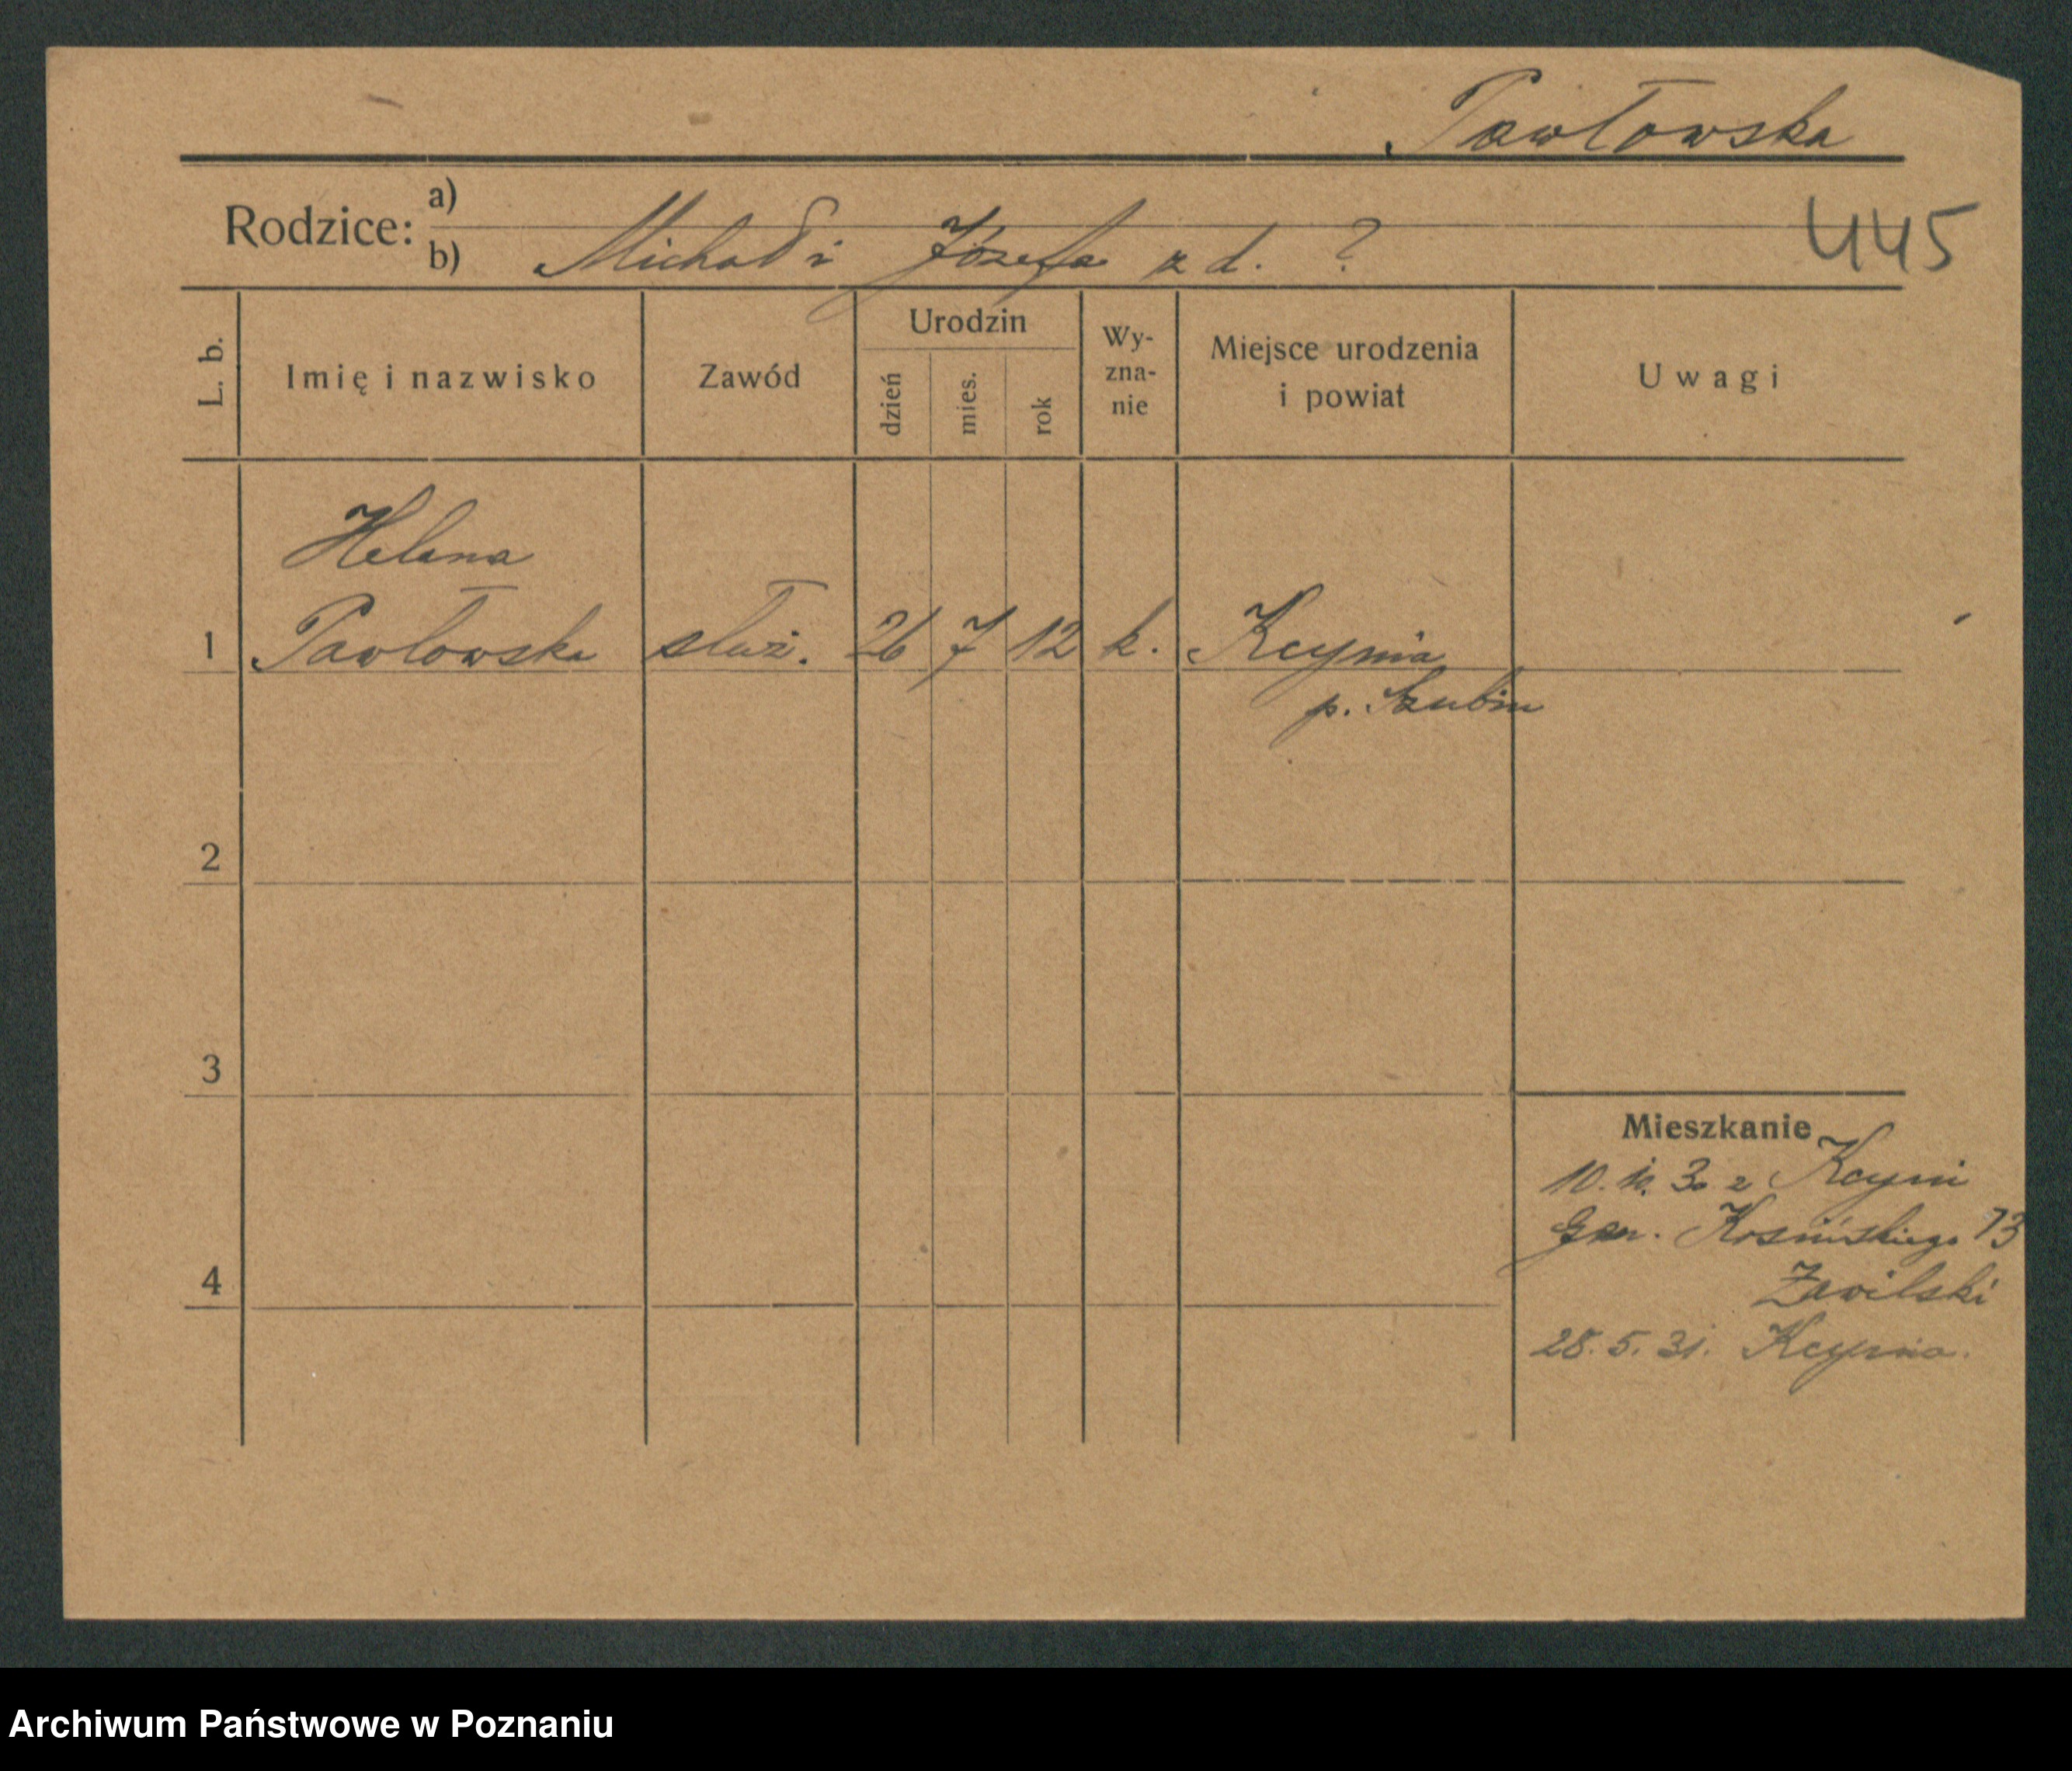 Pawłowska
Rodzice: a)
b) Michał i Józefa z d. ?
445
L. b.
Imię i nazwisko
Zawód
Urodzin
dzień
mies.
rok
Wy-
zna-
nie
Miejsce urodzenia
i powiat
Uwagi
Helena
1 Pawłowska służ. 26 7 12 k. Kcynia
p. Szubin
2
3
4
Mieszkanie
10. 10. 30 z Kcyni
Gen. Kosińskiego 13
Zawilski
28. 5. 31. Kcynia.
Archiwum Państwowe w Poznaniu